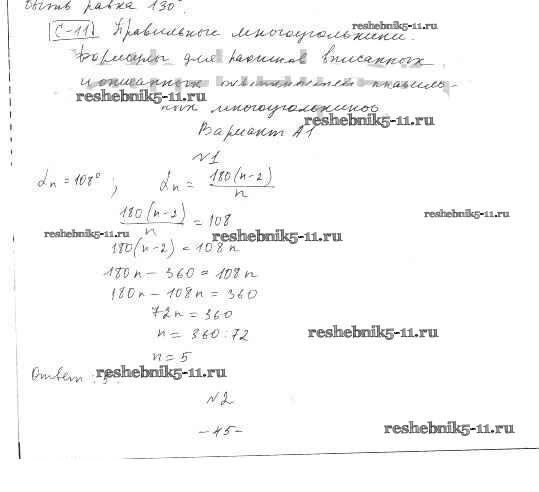 быть равна 130°.
С-11 Правильные многоугольники. reshebnik5-11.ru
Формулы для радиусов вписанных
и описанных
reshebnik5-11.ru
ных многоугольников reshebnik5-11.ru
Вариант А1
№1
αn = 108° ; αn = 180(n-2)/n
180(n-2)/n = 108 reshebnik5-11.ru
reshebnik5-11.ru reshebnik5-11.ru
180(n-2) = 108n
180n - 360 = 108n
180n - 108n = 360
72n = 360
n = 360:72 reshebnik5-11.ru
n = 5
Ответ: 5. reshebnik5-11.ru
№2
- 45 - reshebnik5-11.ru